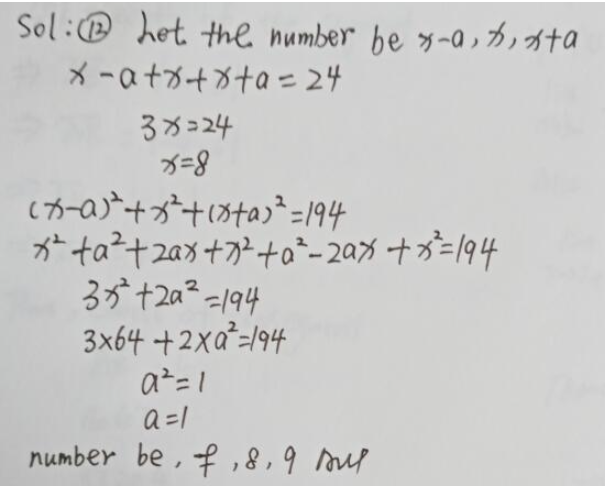 Sol:⑫ Let the number be x-a, x, x+a
x-a+x+x+a=24
3x=24
x=8
(x-a)²+x²+(x+a)²=194
x²+a²+2ax+x²+a²-2ax+x²=194
3x²+2a²=194
3×64+2×a²=194
a²=1
a=1
number be, 7, 8, 9 Ans